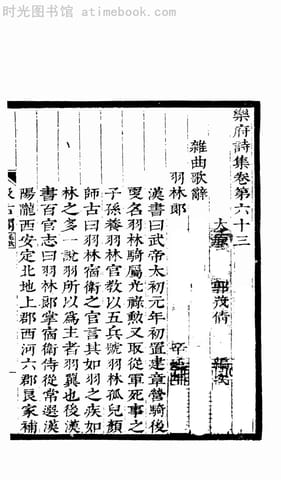 时光图书馆 atimebook.com
樂府詩集卷第六十三
太 郭茂倩
雜曲歌辭
羽林郎 辛延年
漢書曰武帝太初元年初置建章營騎後
更名羽林騎屬光祿勲又取從軍死事之
子孫養羽林官教以五兵號羽林孤兒顔
師古曰羽林宿衛之官言其如羽之疾如
林之多一說羽所以為主者羽翼也後漢
書百官志曰羽林郎掌宿衛侍從常選漢
陽隴西安定北地上郡西河六郡良家補